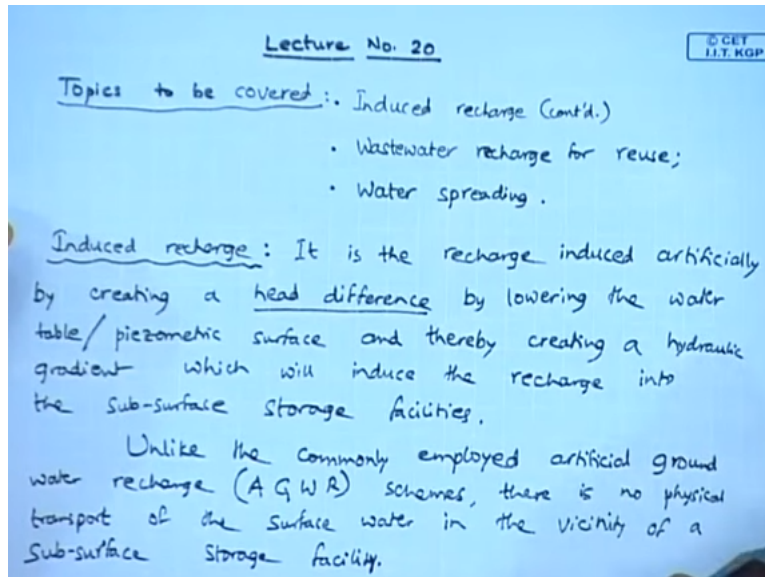 Lecture No. 20
© CET
I.I.T. KGP
Topics to be covered :. Induced recharge (cont'd.)
. Wastewater recharge for reuse;
. Water spreading.
Induced recharge : It is the recharge induced artificially
by creating a head difference by lowering the water
table/piezometric surface and thereby creating a hydraulic
gradient which will induce the recharge into
the sub-surface storage facilities.
Unlike the commonly employed artificial ground
water recharge (AGWR) schemes, there is no physical
transport of the surface water in the vicinity of a
sub-surface storage facility.